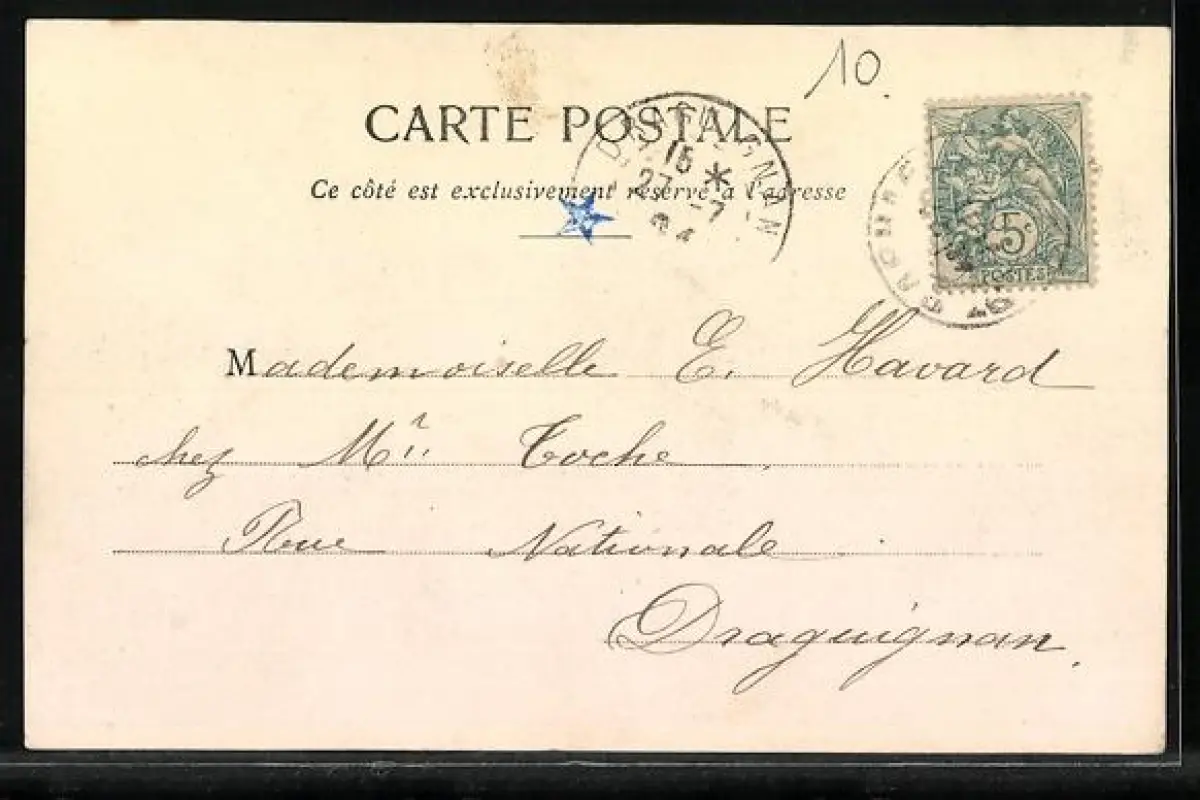 10.
CARTE POSTALE
Ce côté est exclusivement réservé à l'adresse
DRAGUIGNAN
15 *
27 -7
04
5c
POSTES
Mademoiselle E. Havard
chez Mr. Toche
Rue Nationale
Draguignan.